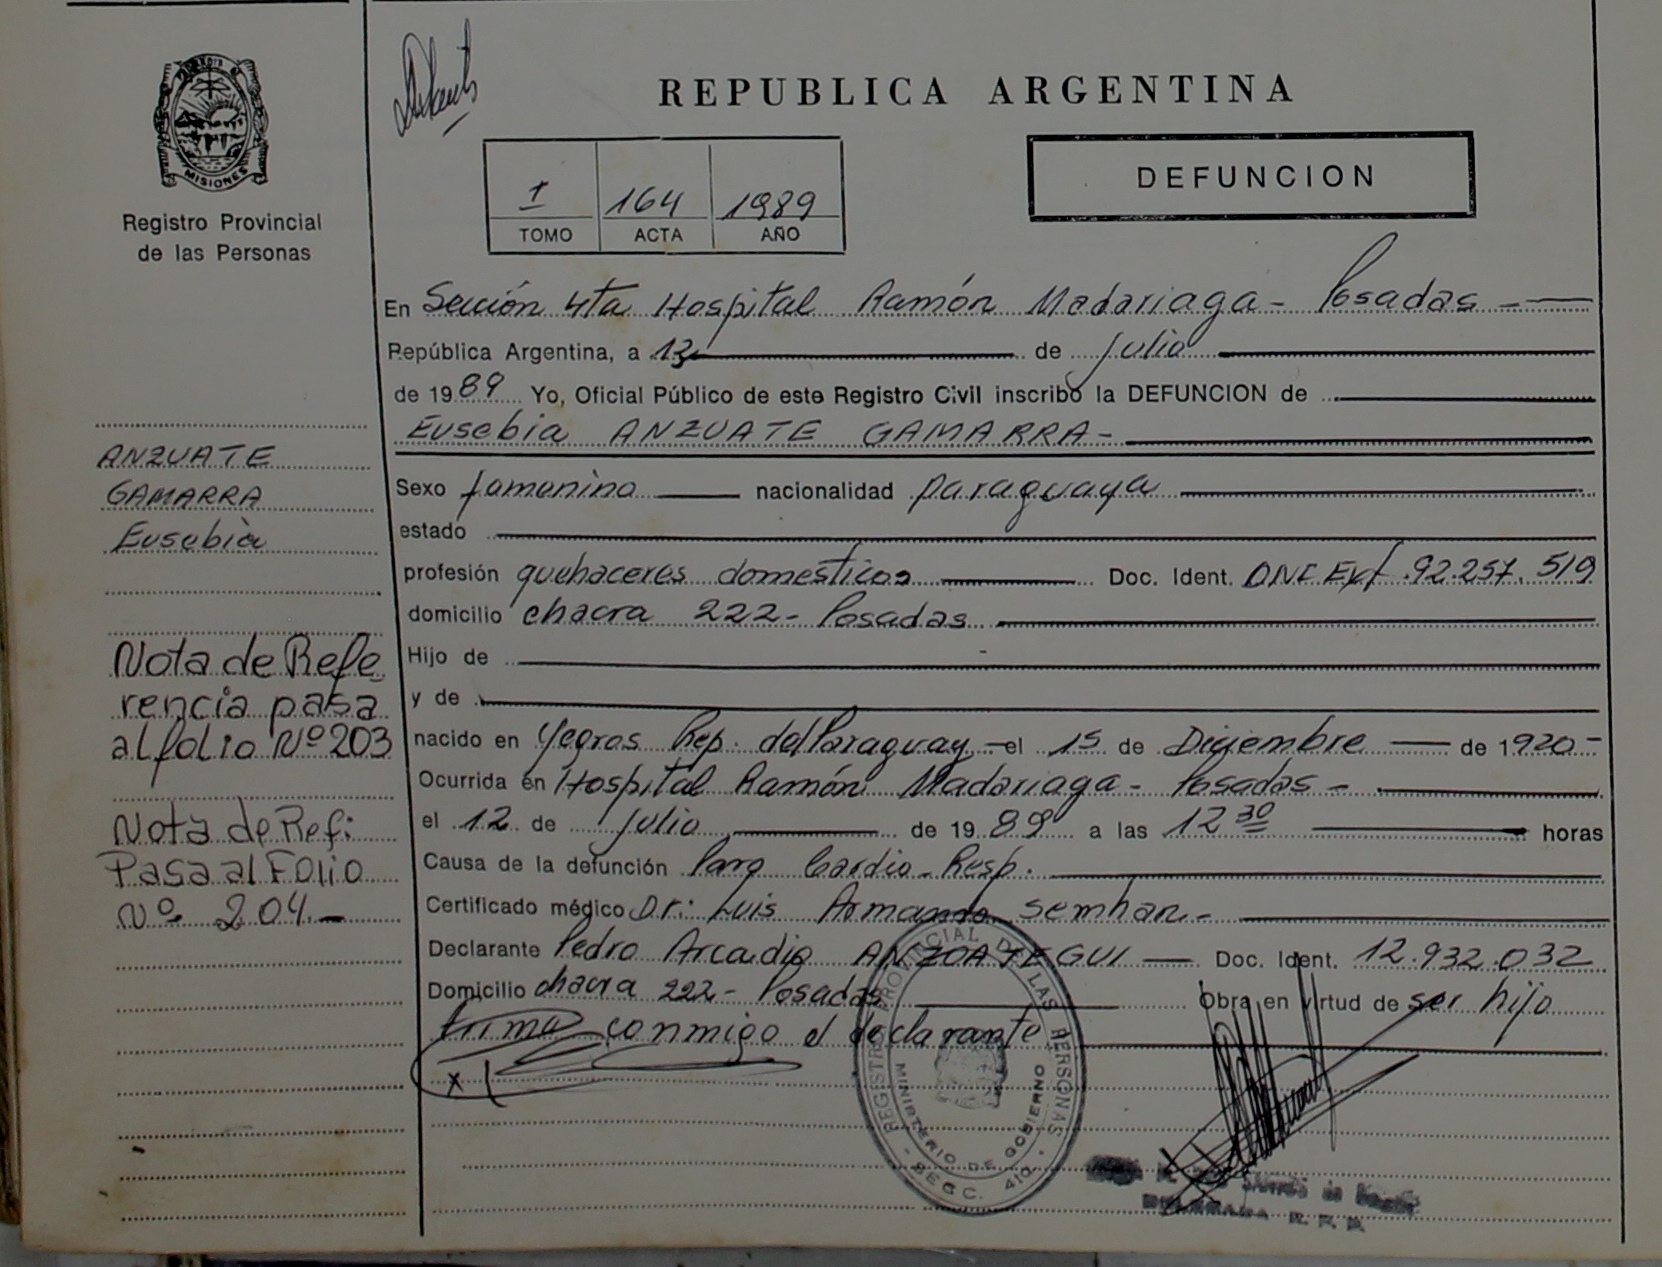 MISIONES
Registro Provincial
de las Personas
REPUBLICA ARGENTINA
I 164 1989
TOMO ACTA AÑO
DEFUNCION
En Sección 4ta Hospital Ramón Madariaga - Posadas -
República Argentina, a 13 de julio
de 1989 Yo, Oficial Público de este Registro Civil inscribo la DEFUNCION de
Eusebia ANZUATE GAMARRA -
ANZUATE
GAMARRA
Eusebia
Sexo famenino nacionalidad paraguaya
estado
profesión quehaceres domésticos Doc. Ident. DNI Ext. 92.257.519
domicilio chacra 222 - Posadas
Hijo de
y de
nacido en Yegros Rep. del Paraguay - el 15 de Diciembre de 1920 -
Ocurrida en Hospital Ramón Madariaga - Posadas -
el 12 de julio de 1989 a las 12 30 horas
Causa de la defunción Paro Cardio - Resp.
Certificado médico Dr: Luis Armando Semhan -
Declarante Pedro Arcadio ANZOATEGUI Doc. Ident. 12.932.032
Domicilio chacra 222 - Posadas Obra en virtud de ser hijo
Firma conmigo el declarante
x
Nota de Refe
rencia pasa
al folio Nº 203
Nota de Ref:
Pasa al Folio
Nº 204 -
REGISTRO PROVINCIAL DE LAS PERSONAS
MINISTERIO DE GOBIERNO
SECC. 410